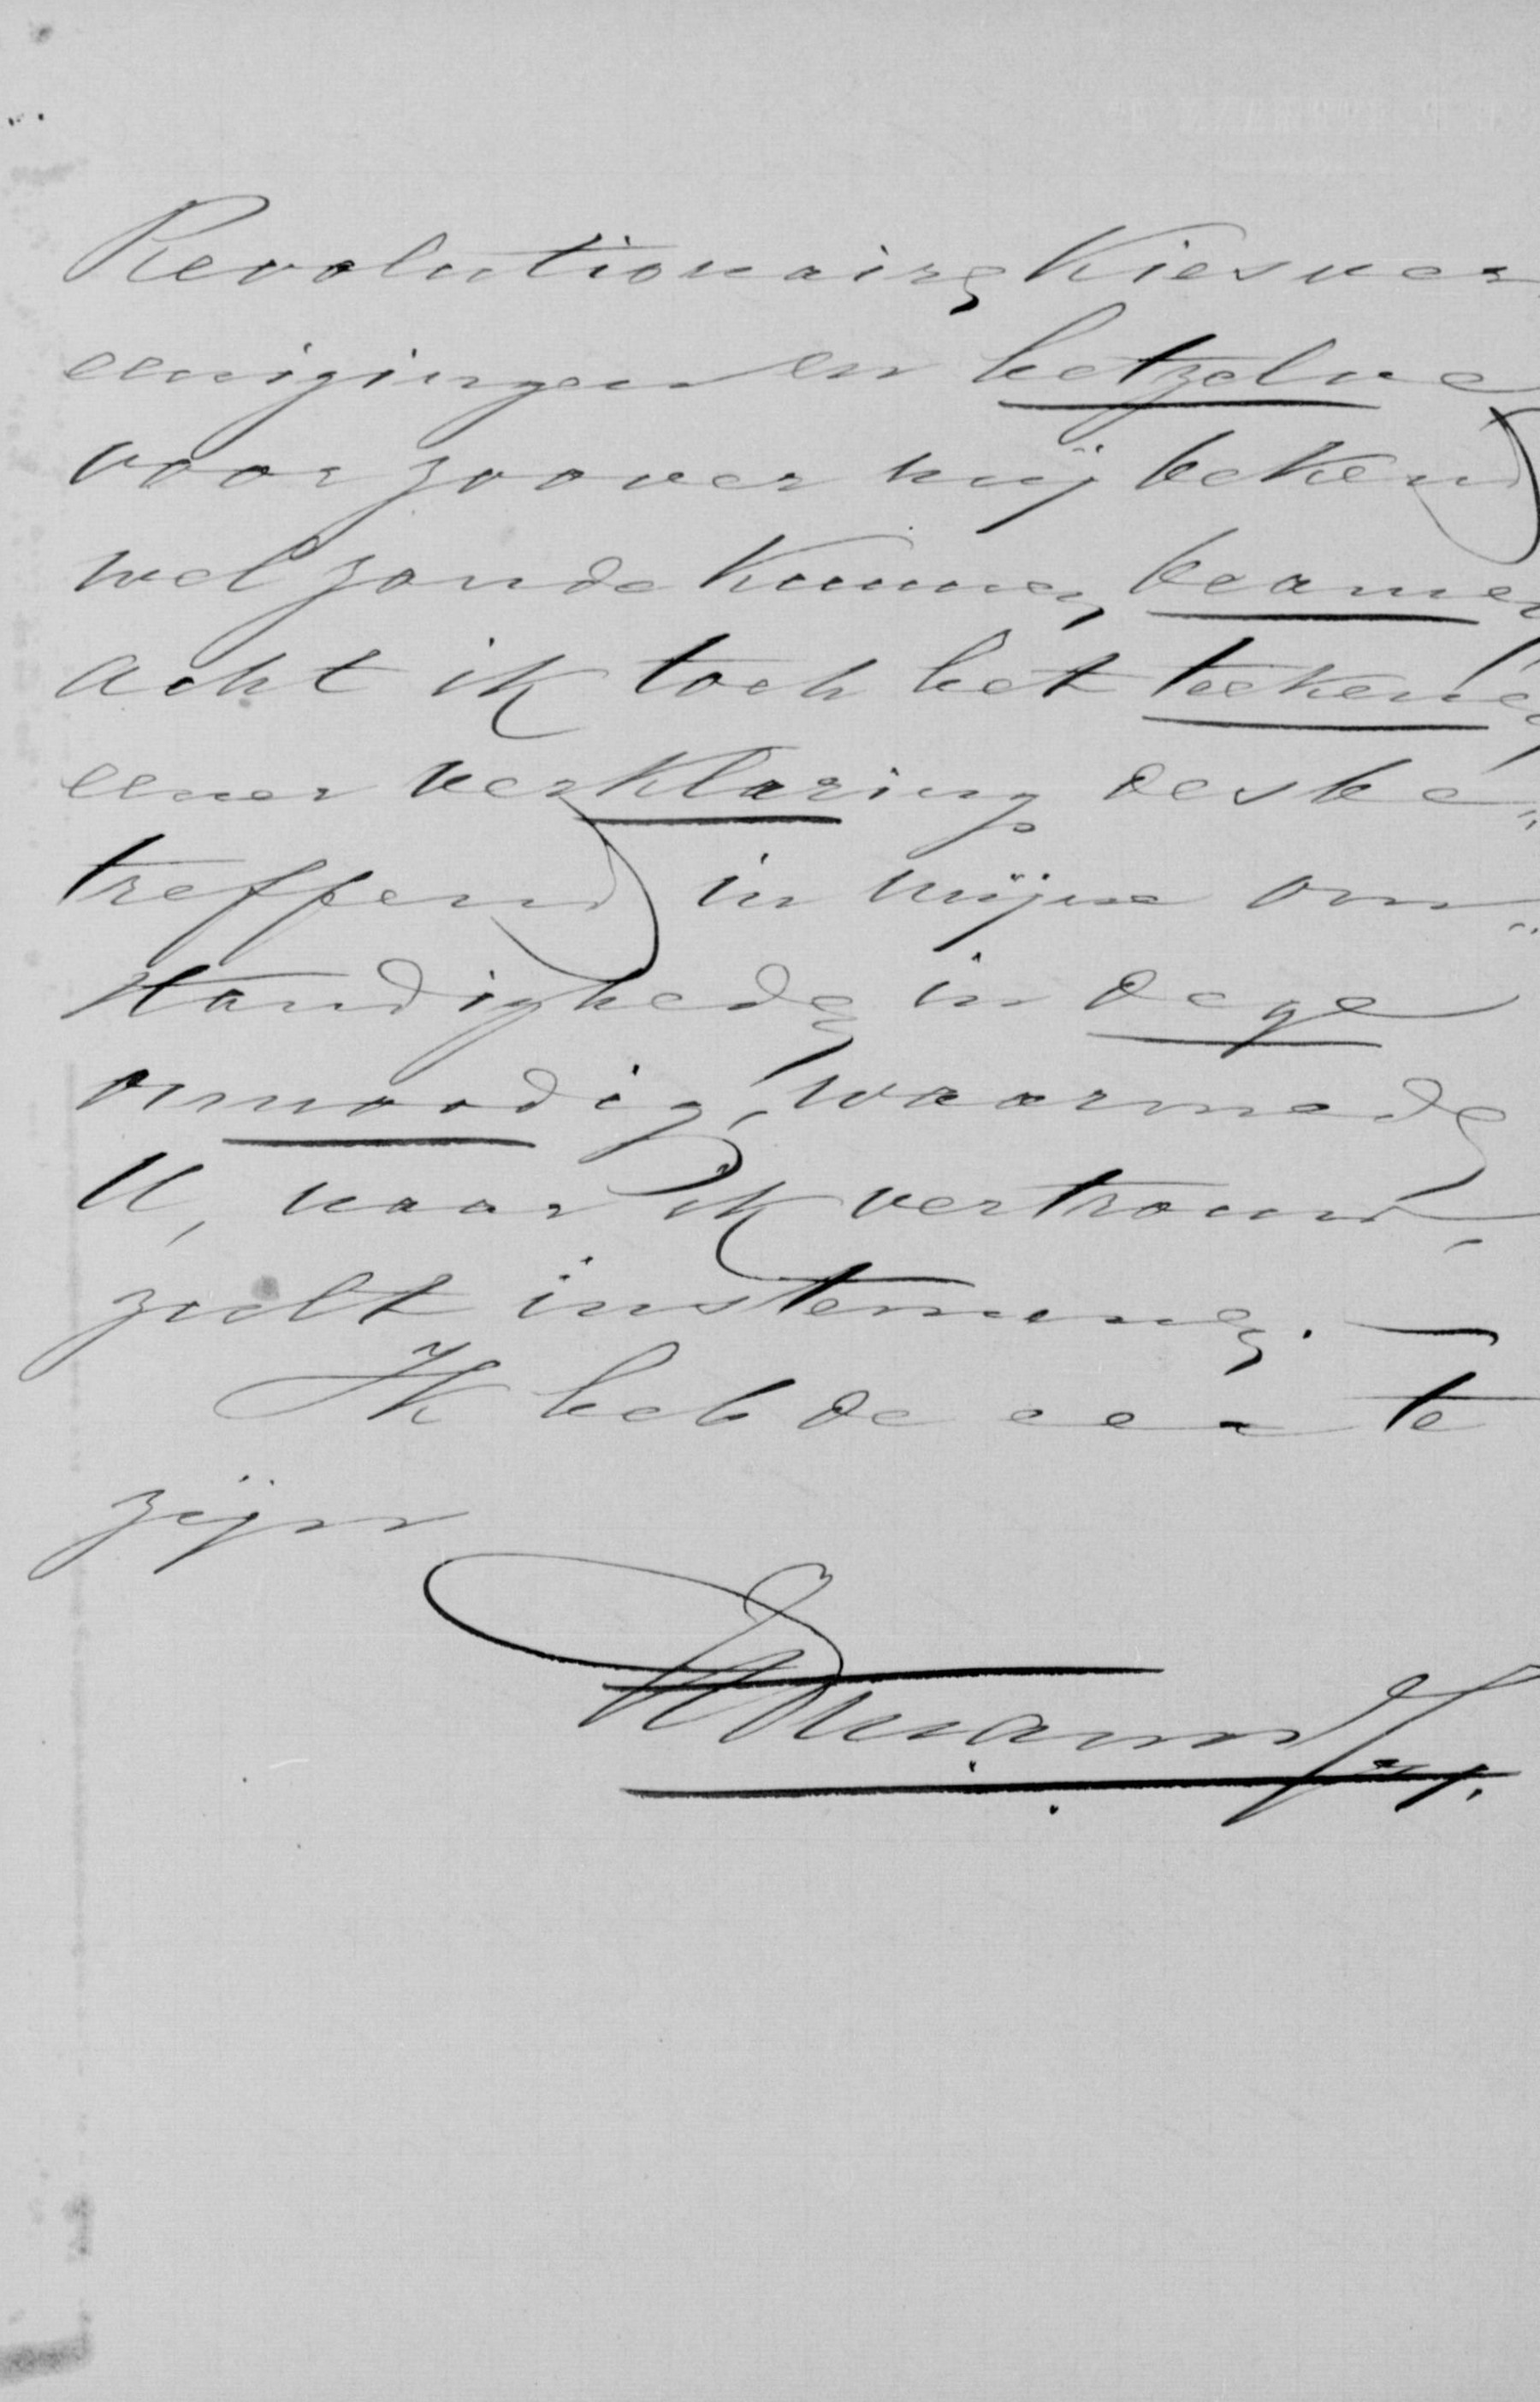 Revolutionaire Kiesver
eenigingen en hetzelve
voor zoover mij bekend
wel zoude kunnen beamen
acht ik toch het teekenen
eener verklaring desbe„
treffend in mijne om„
standigheden in deze
onnoodig, waarmede
U, naar ik vertrouw,
zult instemmen. —
Ik heb de eer te
zijn